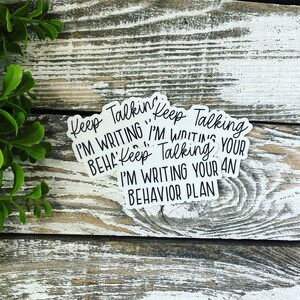 Keep Talkin
I'M WRITING
BEHA
Keep Talking
I'M WRITING YOUR
AN
Keep Talking
I'M WRITING YOUR
BEHAVIOR PLAN